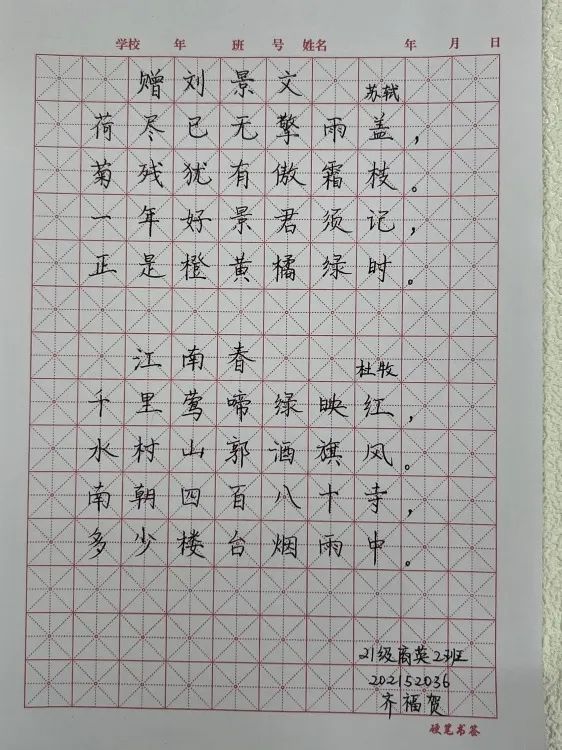 学校 年 班 号 姓名 年 月 日
赠刘景文 苏轼
荷尽已无擎雨盖，
菊残犹有傲霜枝。
一年好景君须记，
正是橙黄橘绿时。
江南春 杜牧
千里莺啼绿映红，
水村山郭酒旗风。
南朝四百八十寺，
多少楼台烟雨中。
21级商英2班
202152036
齐福贺
硬笔书签